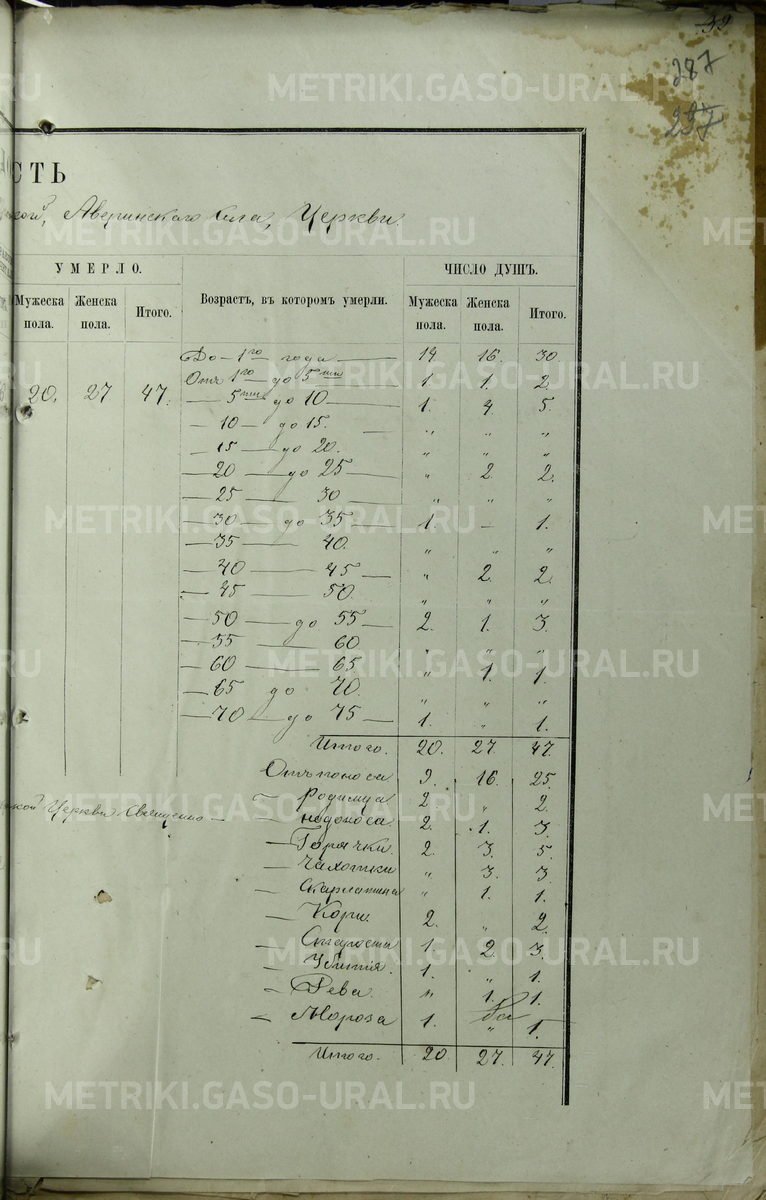 39
287
297
СТЬ
Аверинскаго села, Церкви.
УМЕРЛО. ЧИСЛО ДУШЪ.
Мужеска пола. Женска пола. Итого. Возрастъ, въ которомъ умерли. Мужеска пола. Женска пола. Итого.
До 1го года 14 16. 30
Отъ 1го до 5ти 1. 1. 2.
20. 27 47. 5ти до 10 1. 4. 5.
— 10 — до 15. „ „ „
— 15 — до 20. „ „ „
— 20 — до 25 — „ 2. 2.
— 25 — 30 „ „ „
— 30 — до 35 — 1. – 1.
— 35 — 40. „ „ „
— 40 — 45 — „ 2. 2.
— 45 — 50. „ „ „
— 50 — до 55 — 2. 1. 3.
— 55 — 60 „ „ „
— 60 — 65 „ 1. 1.
— 65 до 70. „ „ „
— 70 — до 75 — 1. „ 1.
Итого. 20. 27. 47.
Отъ поноса 9. 16. 25.
— Родимца 2. „ 2.
Церкви Священно — — недоноса 2. 1. 3.
— Горячки. 2. 3. 5.
— Чахотки „ 3. 3.
— Скарлатина „ 1. 1.
— Кори. 2. „ 2.
— Старости 1. 2. 3.
— Убитія. 1. „ 1.
— Рева. „ 1. 1.
— Мороза 1. „ 1.
Итого. 20. 27. 47.
METRIKI.GASO-URAL.RU